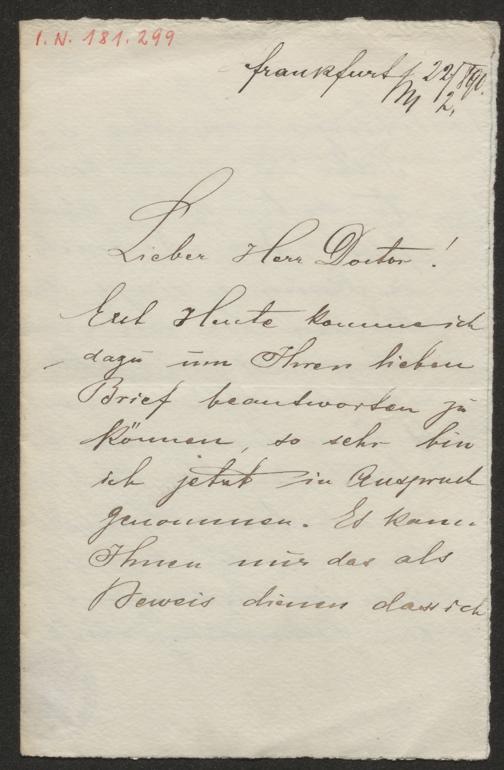 I.N. 181.299
Frankfurt / 22/
M 2.
Lieber Herr Doctor!
Erst Heute komme ich
dazu um Ihren lieben
Brief beantworten zu
können, so sehr bin
ich jetzt in Anspruch
genommen. Es kann
Ihnen nur das als
Beweis dienen dass ich